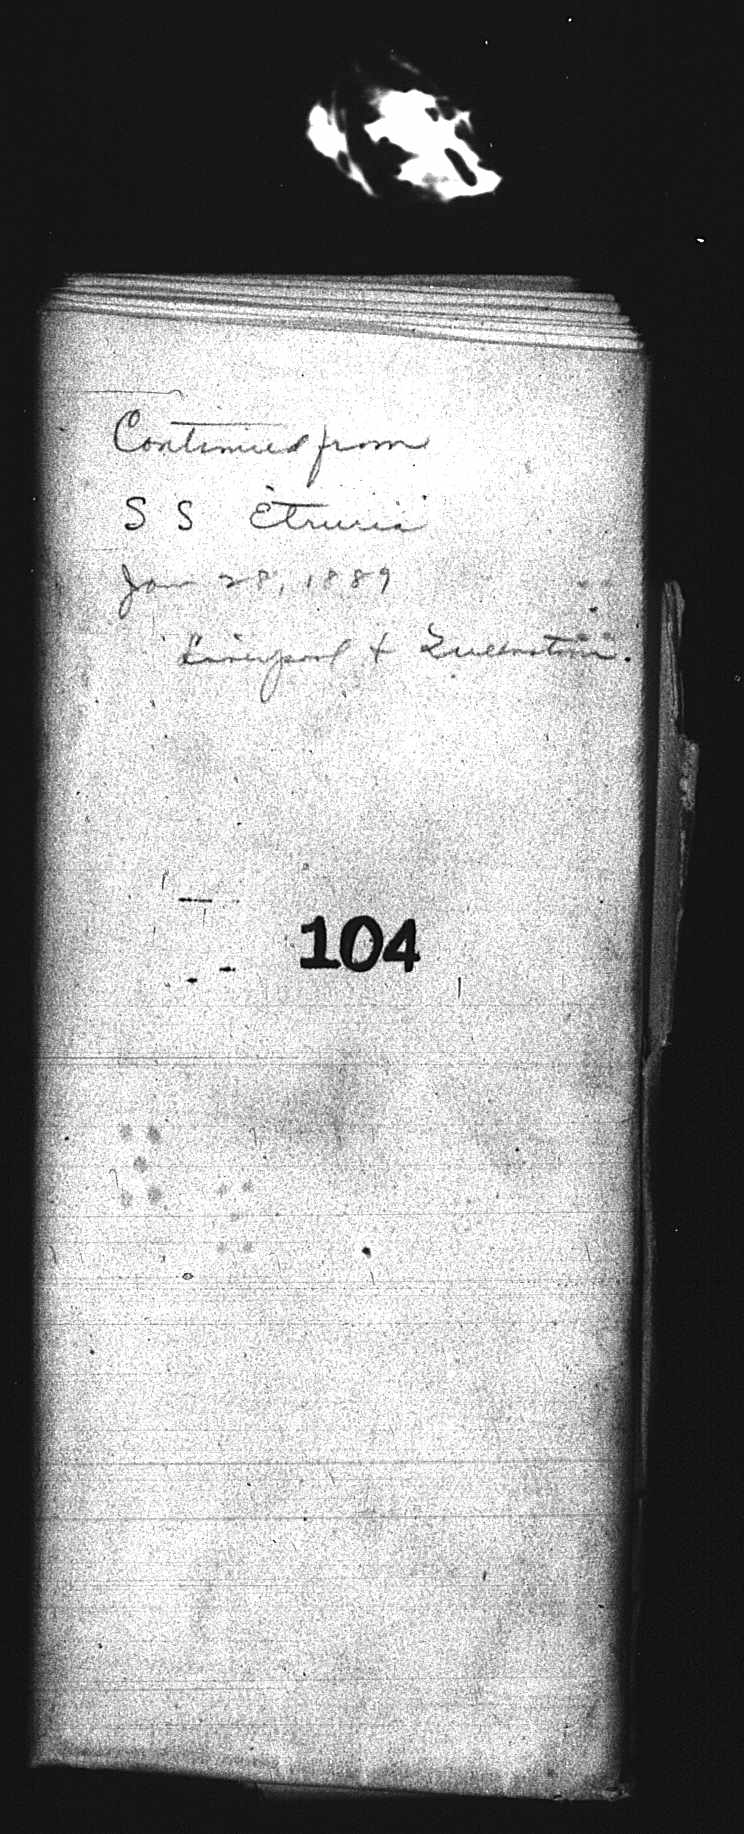 Continued from
S S Etruria
Jan 28, 1889
Liverpool & Queenstown.
104